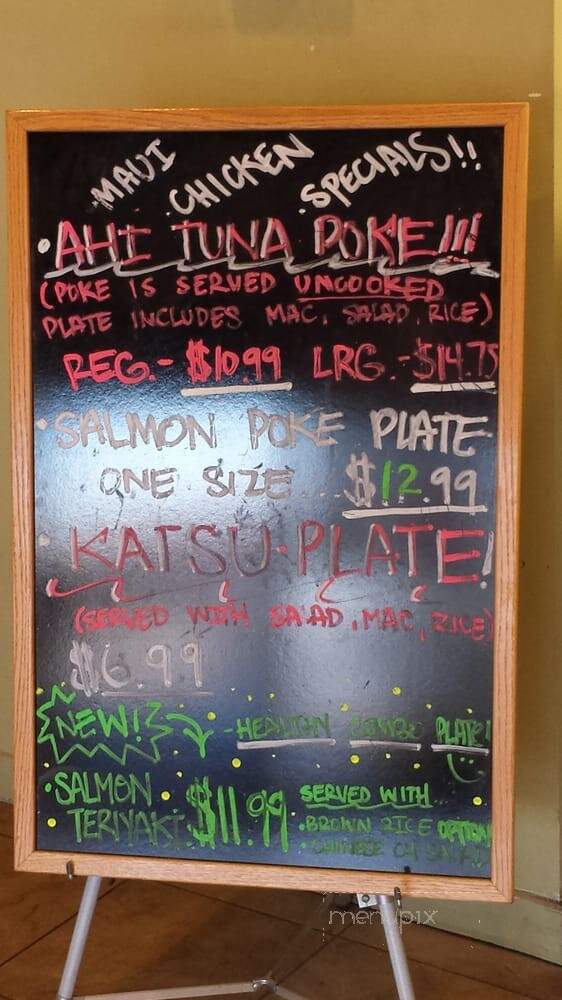 MAUI CHICKEN SPECIALS!!
• AHI TUNA POKE!!!
(POKE IS SERVED UNCOOKED
PLATE INCLUDES MAC, SALAD, RICE)
REG. - $10.99 LRG. - $14.75
• SALMON POKE PLATE
ONE SIZE... $12.99
• KATSU • PLATE!
(SERVED WITH SALAD, MAC, RICE)
$6.99
NEW! - HEALTHY COMBO PLATE!
• SALMON TERIYAKI. $11.99
SERVED WITH...
• BROWN RICE OPTION
• CHINESE
menupix